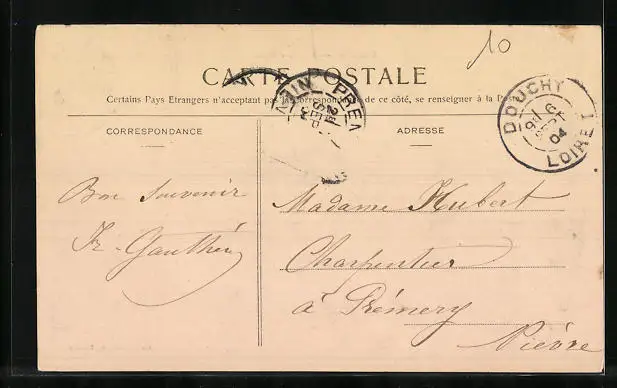 10
CARTE POSTALE
Certains Pays Etrangers n'acceptant pas la correspondance de ce côté, se renseigner à la Poste
CORRESPONDANCE
ADRESSE
DOUCHY
6
SEPT
04
LOIRET
Bon Souvenir
Madame Hubert
Charpentier
à Prémery
Nièvre